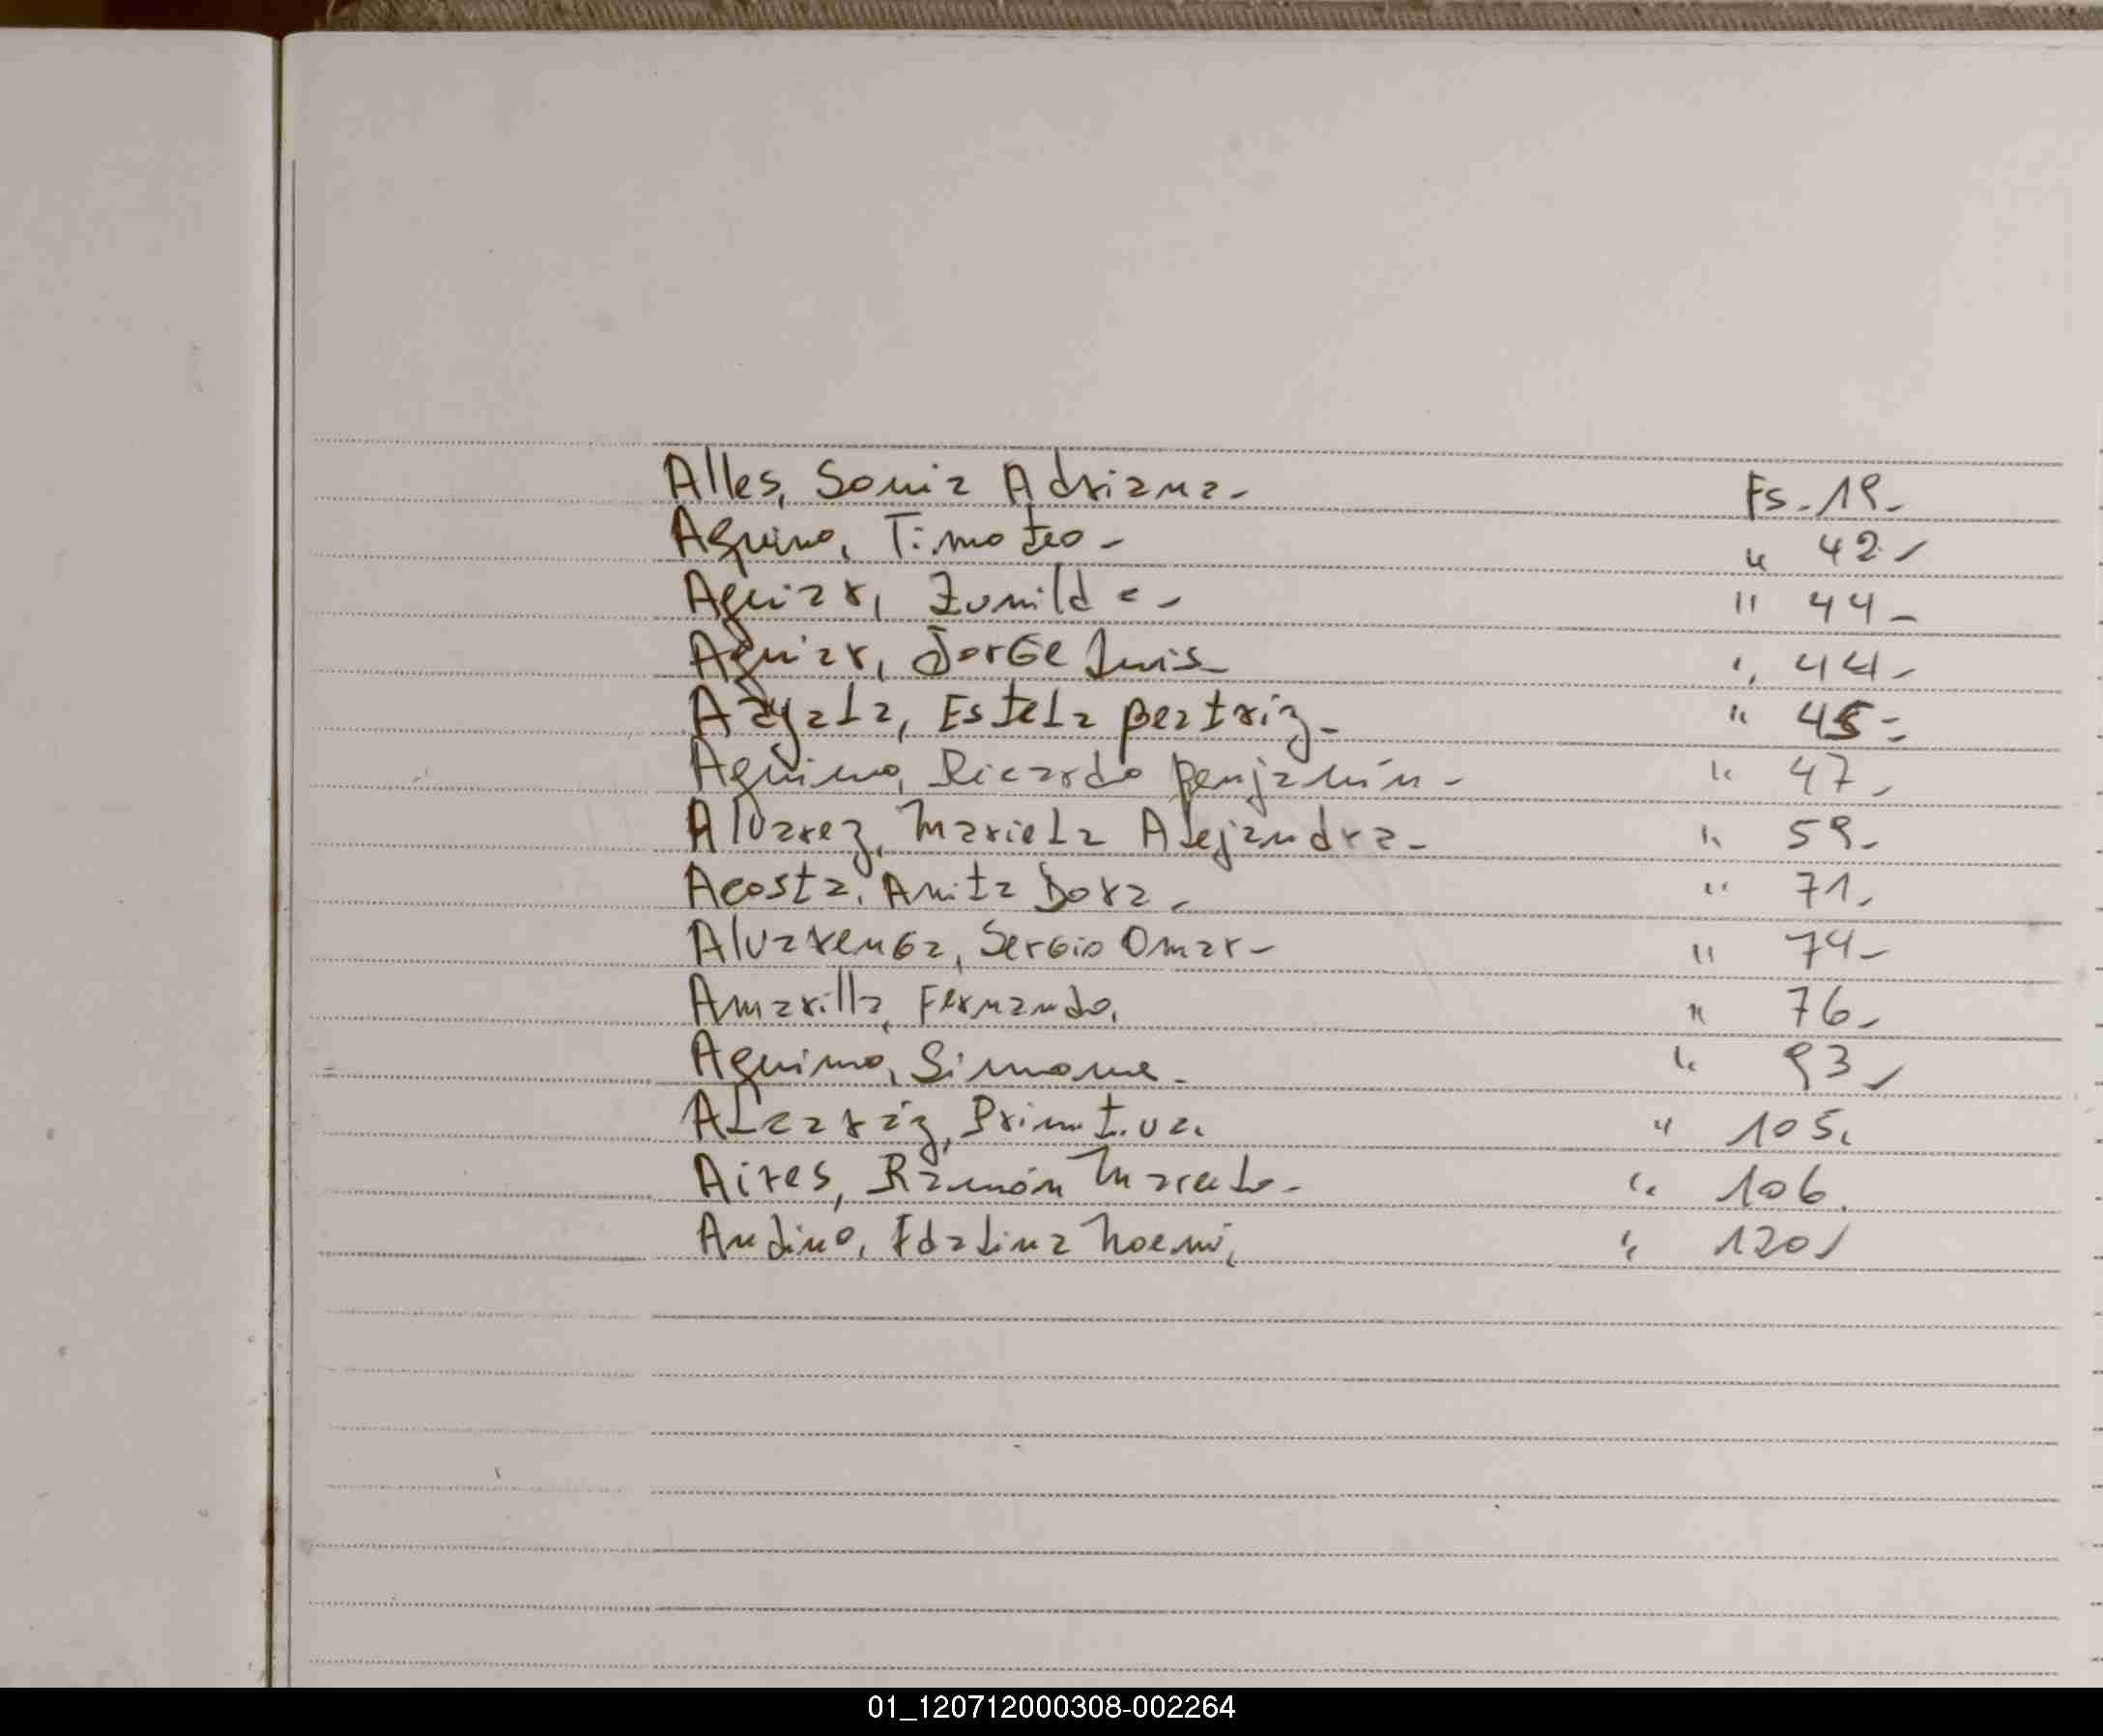 Alles, Sonia Adriana- Fs. 19-
Aquino, Timoteo- " 42-
Aguiar, Zunilda- " 44-
Aguiar, Jorge Luis- " 44-
Azyala, Estela Beatriz- " 45=
Aquino, Ricardo Benjamín- " 47-
Alvarez, Mariela Alejandra- " 59-
Acosta, Anita Dora- " 71-
Alvarenga, Sergio Omar- " 74-
Amarilla, Fernando. " 76-
Aquino, Simone. " 93-
Alcaráz, Primitiva. " 105.
Aires, Ramón Marcelo- " 106.
Andino, Idalina Noemí, " 120-
01_120712000308-002264